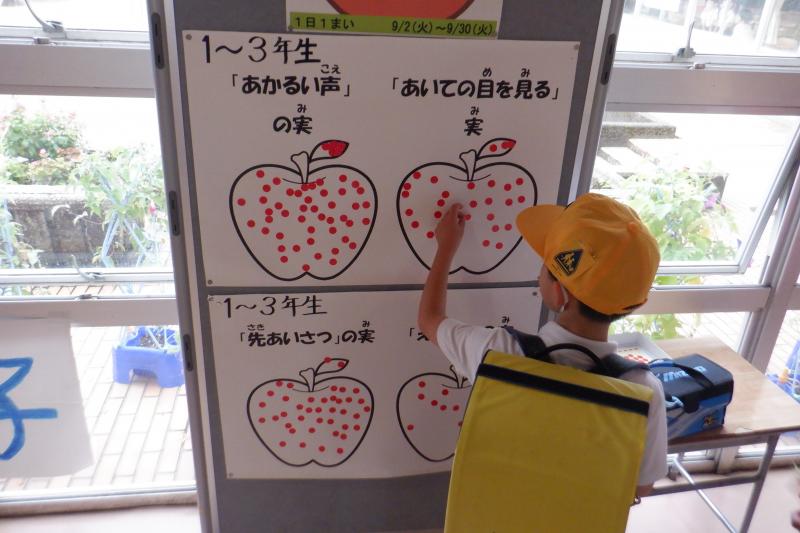 1日1まい 9/2(火)～9/30(火)
1～3年生
「あかるい声」
こえ
の実
み
「あいての目を見る」
め み
実
み
1～3年生
「先あいさつ」の実
さき み
の
子